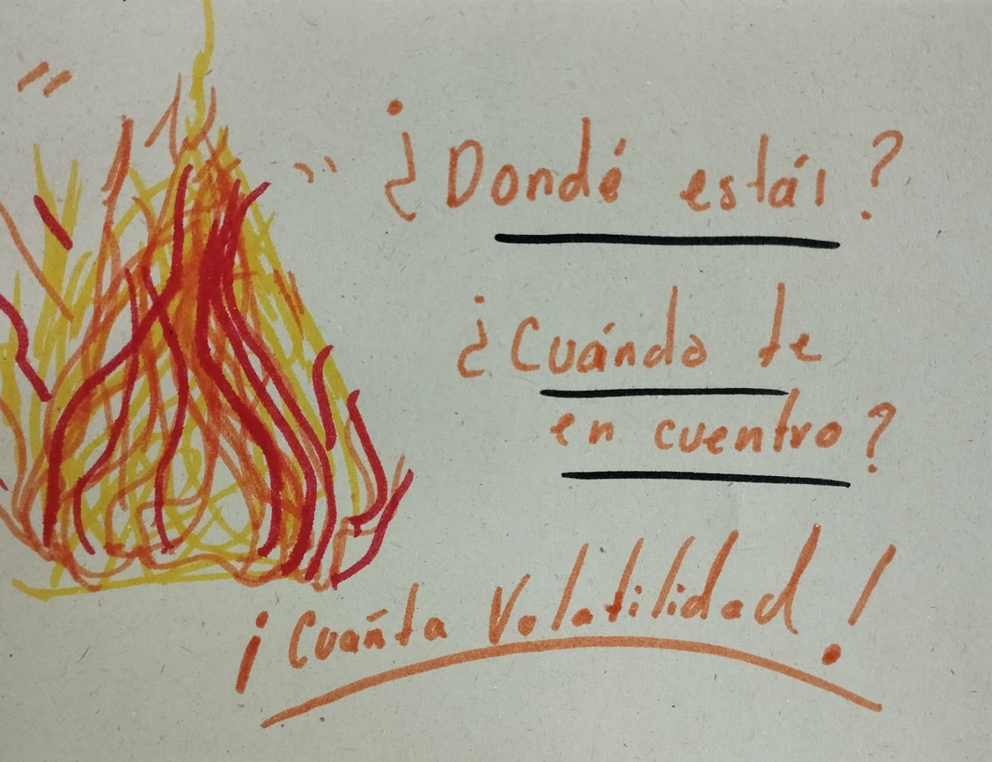 ¿Dondé estás?
¿Cuándo te
en cuentro?
¡Cuańta Volatilidad!